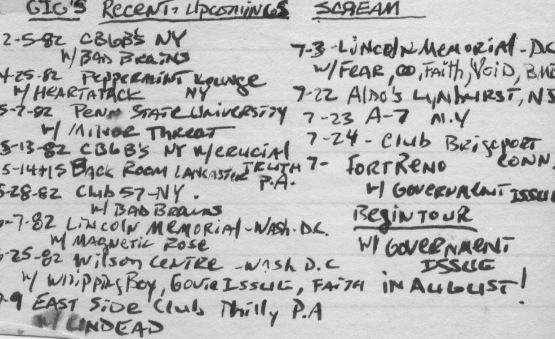 GIG'S RECENT-UPCOMINGS SCREAM
2-5-82 CBGB'S NY
W/BAD BRAINS
4-25-82 PEPPERMINT LOUNGE
W/HEARTATTACK NY
5-7-82 PENN STATE UNIVERSITY
W/ MINOR THREAT
5-13-82 CBGB'S NY W/CRUCIAL TRUTH
5-14+15 BACK ROOM LANCASTER P.A.
5-28-82 CLUB 57-NY.
W/ BAD BRAINS
6-7-82 LINCOLN MEMORIAL-WASH. D.C.
W/ MAGNETIC ROSE
6-25-82 WILSON CENTRE-WASH D.C
W/ WHIPPING BOY, GOV'T ISSUE, FAITH
7-9 EAST SIDE CLUB Philly P.A
W/ UNDEAD
7-3-LINCOLN MEMORIAL-D.C
W/FEAR, FAITH, VOID,
7-22 ALDO'S LYNDHURST, NJ
7-23 A-7 N.Y
7-24-Club BRIGEPORT CONN.
7- FORT RENO
W/ GOVERNMENT ISSUE
BEGIN TOUR
W/ GOVERNMENT ISSUE
IN AUGUST!